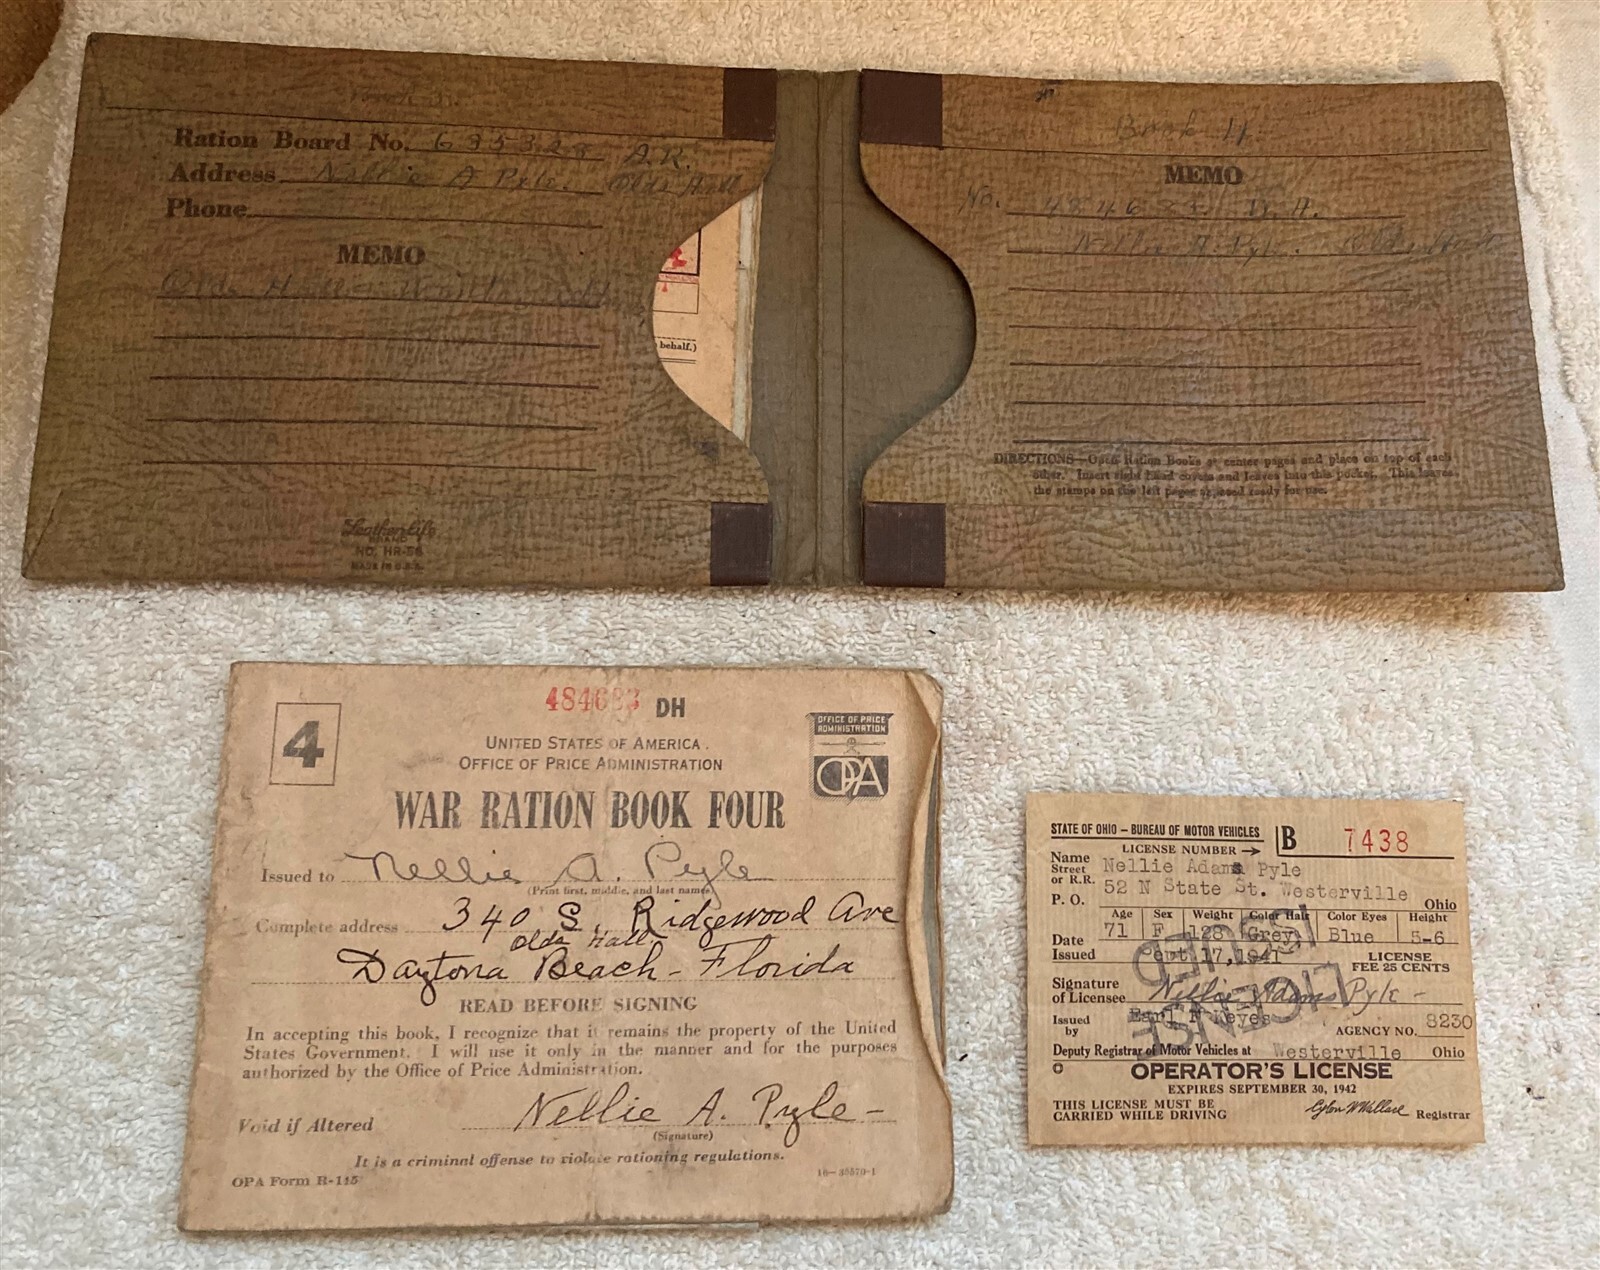 Ration Board No. 635328 A.K.
Address Nellie A Pyle. Olds Hall
Phone
MEMO
Olds Hall
behalf.)
Leather-Life
BRAND
NO. HR-58
MADE IN U.S.A.
Book 4.
MEMO
No. 484623 D.H.
Nellie A. Pyle.
DIRECTIONS—Open Ration Books at center pages and place on top of each
other. Insert right hand covers and leaves into this pocket. This leaves
the stamps on the left pages exposed ready for use.
4
484623 DH
OFFICE OF PRICE
ADMINISTRATION
OPA
UNITED STATES OF AMERICA
OFFICE OF PRICE ADMINISTRATION
WAR RATION BOOK FOUR
Issued to Nellie A. Pyle
(Print first, middle, and last names)
Complete address 340 S. Ridgewood Ave
Olds Hall
Daytona Beach - Florida
READ BEFORE SIGNING
In accepting this book, I recognize that it remains the property of the United
States Government. I will use it only in the manner and for the purposes
authorized by the Office of Price Administration.
Void if Altered Nellie A. Pyle -
(Signature)
It is a criminal offense to violate rationing regulations.
OPA Form R-145 16—35570-1
STATE OF OHIO – BUREAU OF MOTOR VEHICLES B 7438
LICENSE NUMBER →
Name Nellie Adams Pyle
Street or R.R. 52 N State St. Westerville
P. O. Ohio
Age Sex Weight Color Hair Color Eyes Height
71 F 128 Grey Blue 5-6
Date Issued Sept 17, 1941 LICENSE FEE 25 CENTS
ISSUED
LICENSE
Signature of Licensee Nellie Adams Pyle -
Issued by Earl N Keyes AGENCY NO. 8230
Deputy Registrar of Motor Vehicles at Westerville Ohio
OPERATOR'S LICENSE
EXPIRES SEPTEMBER 30, 1942
THIS LICENSE MUST BE
CARRIED WHILE DRIVING Cylon W Wallace Registrar